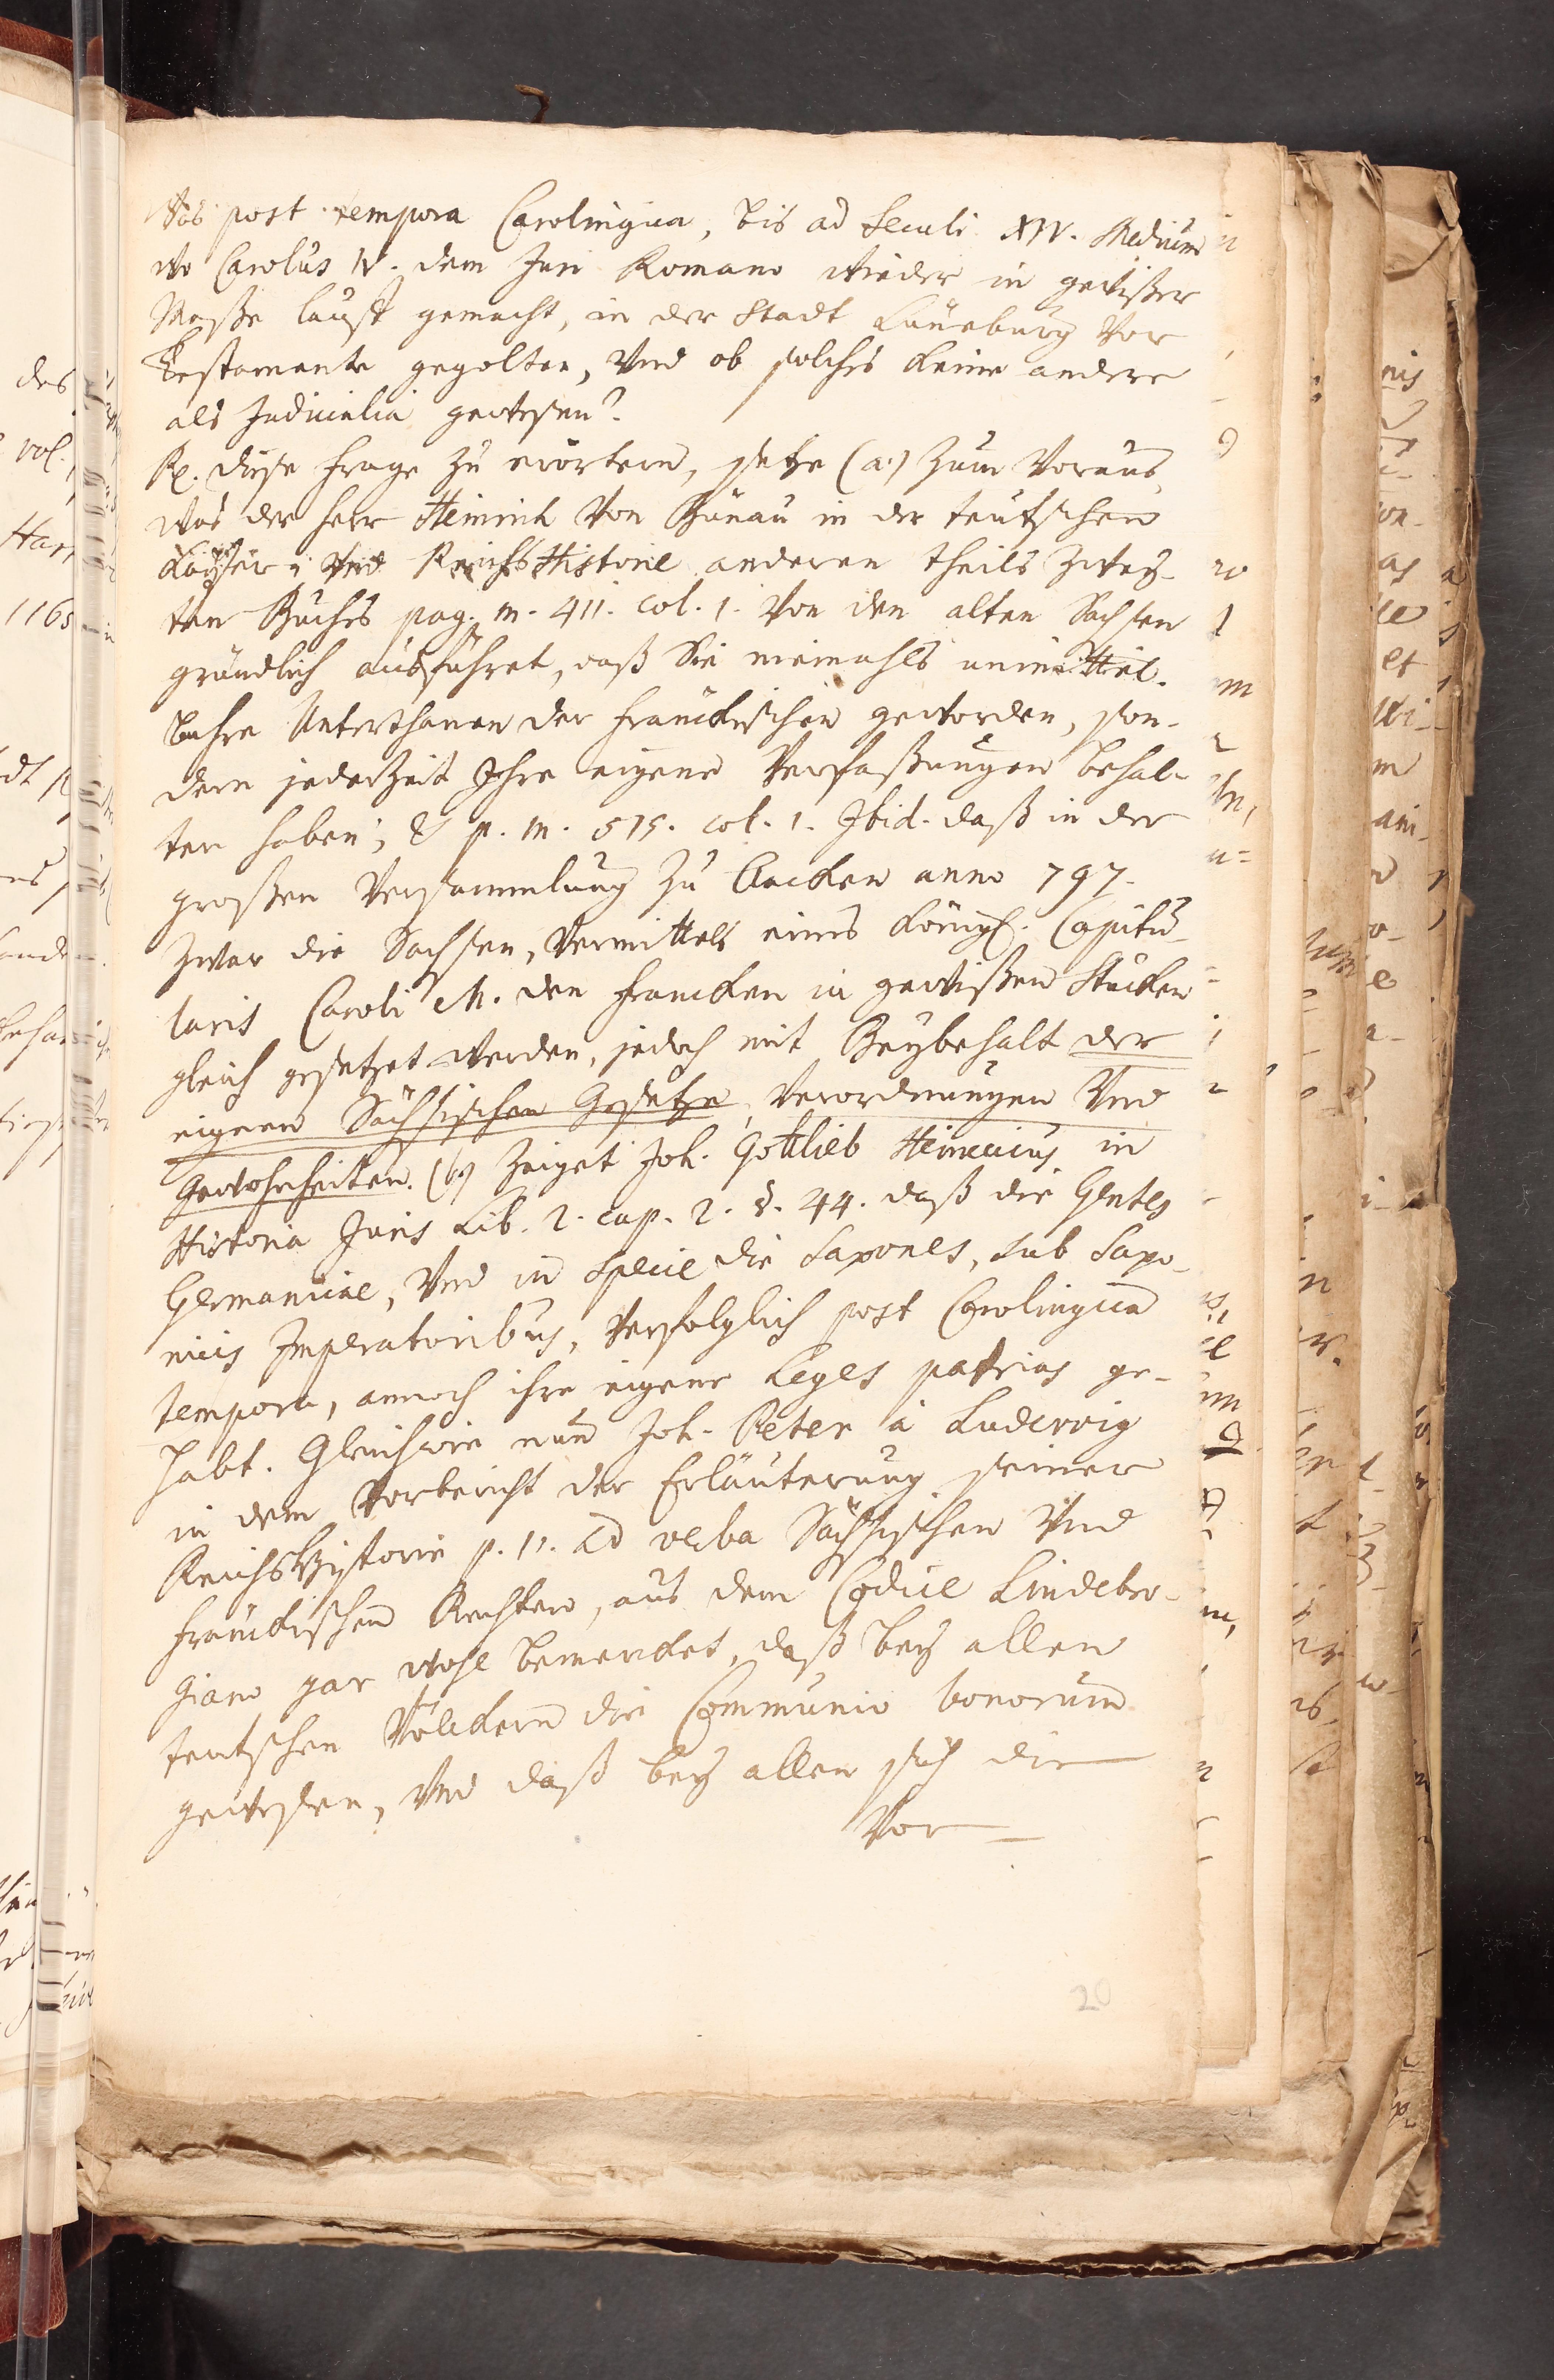 Was post tempora Carolingica, bis ad Seculi XIV. Medium
wo Carolus IV. dem Juri Romano wieder in gewißer
Maße lauft gemacht, in der Stadt Lüneburg vor
Testamente gegolten, und ob solches keine andere
als Judicialia gewesen?
Rx. diese Frage zu erörtern, setze (a.) zum Voraus,
was der Herr Heinrich von Bünau in der teutschen
Kayser und Reichs Historie anderen theils zwey-
ten Buchs pag. m. 411. col. 1. von den alten Sachsen
gründlich ausführet, daß Sie niemahls unmittel-
bahre Unterthanen der Fränckischen geworden, son-
dern jederzeit Ihre eigene Verfaßungen behal-
ten haben; & p. m. 515. col. 1. Ibid. daß in der
großen Versammlung zu Aacken anno 797.
zwar die Sachsen, vermittels eines Königl. Capitu-
laris Caroli M. den Francken in gewißen Stücken
gleich gesetzet werden, jedoch mit Beybehalt der
eigenen Sächsischen Gesetze, Verordnungen und
Gewohnheiten. (b.) Zeiget Joh. Gottlieb Heineccius in
Historia Juris Lib. 2. cap. 2. §. 44. daß die Gentes
Germanicae, und in Specie die Saxones, sub Saxo-
nicis Imperatoribus, verfolglich post Carolingica
tempora, annoch ihre eigene Leges patrias ge-
habt. Gleichwie nun Joh. Peter à Ludewig
in dem Vorbericht der Erläuterung seiner
Reichs Historie p. 11. ad verba Sächsischen und
Fränckischen Rechten, aus dem Codice Lindebro-
giano gar wohl bemercket, daß bey allen
teutschen Völckern die Communio bonorum
gewesen, und daß bey allen sich die
Vor-
20